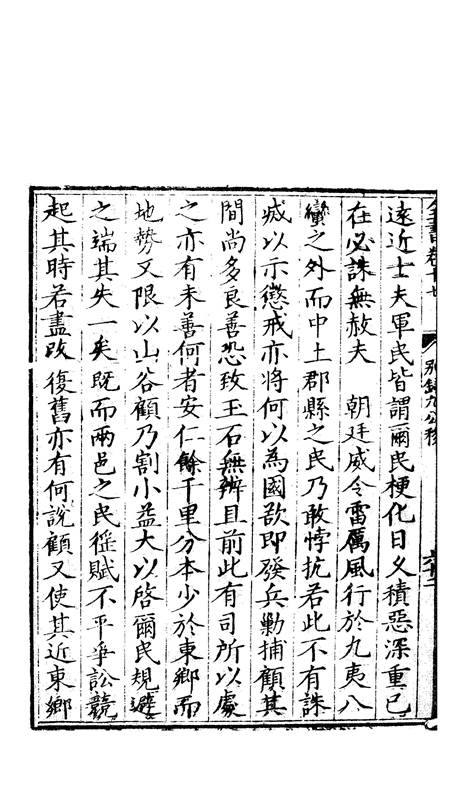 全書卷十七　別錄九公移　六十二
遠近士夫軍民皆謂爾民梗化日久積惡深重已
在必誅無赦夫　朝廷威令雷厲風行於九夷八
蠻之外而中土郡縣之民乃敢悖抗若此不有誅
戚以示懲戒亦將何以為國欲即發兵勦捕顧其
間尚多良善恐致玉石無辨且前此有司所以處
之亦有未善何者安仁餘千里分本少於東鄉而
地勢又限以山谷顧乃割小益大以啓爾民規避
之端其失一矣既而兩邑之民徭賦不平爭訟競
起其時若盡改復舊亦有何說顧又使其近東鄉